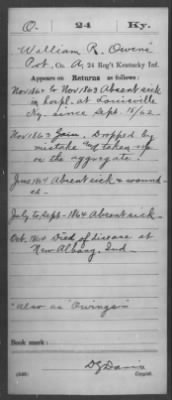 O. 24 Ky.
William R. Owens
Pvt., Co. A, 24 Reg't Kentucky Inf.
Appears on Returns as follows:
Nov 1862 to Nov 1863 Absent sick
in hospl. at Louisville
Ky. since Sept. 15/62
Nov 1863 Gain. Dropped by
mistake and taken up
on the aggregate.
June 1864 Absent sick & wound-
ed.
July to Sept - 1864 Absent sick.
Oct. 1864 Died of disease at
New Albany, Ind
"Also as Owings"
Book mark:
(546)
Copyist.